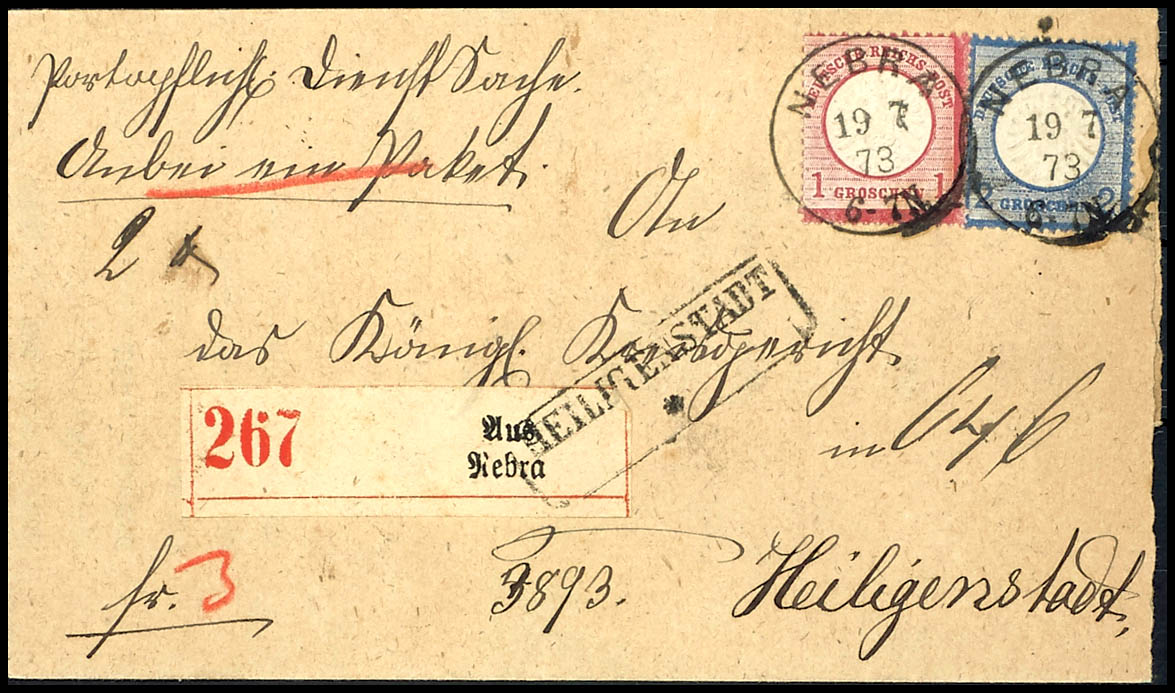 Portopflicht. Dienst Sache.
Anbei ein Paket.
2
An
das Königl. Kreisgericht
in
Heiligenstadt,
fr. 3
3893.
267
Aus
Nebra
HEILIGENSTADT
*
DEUTSCHE REICHS-POST
1 GROSCHEN 1
NEBRA
19 7
73
6-7N
DEUTSCHE REICHS-POST
2 GROSCHEN 2
NEBRA
19 7
73